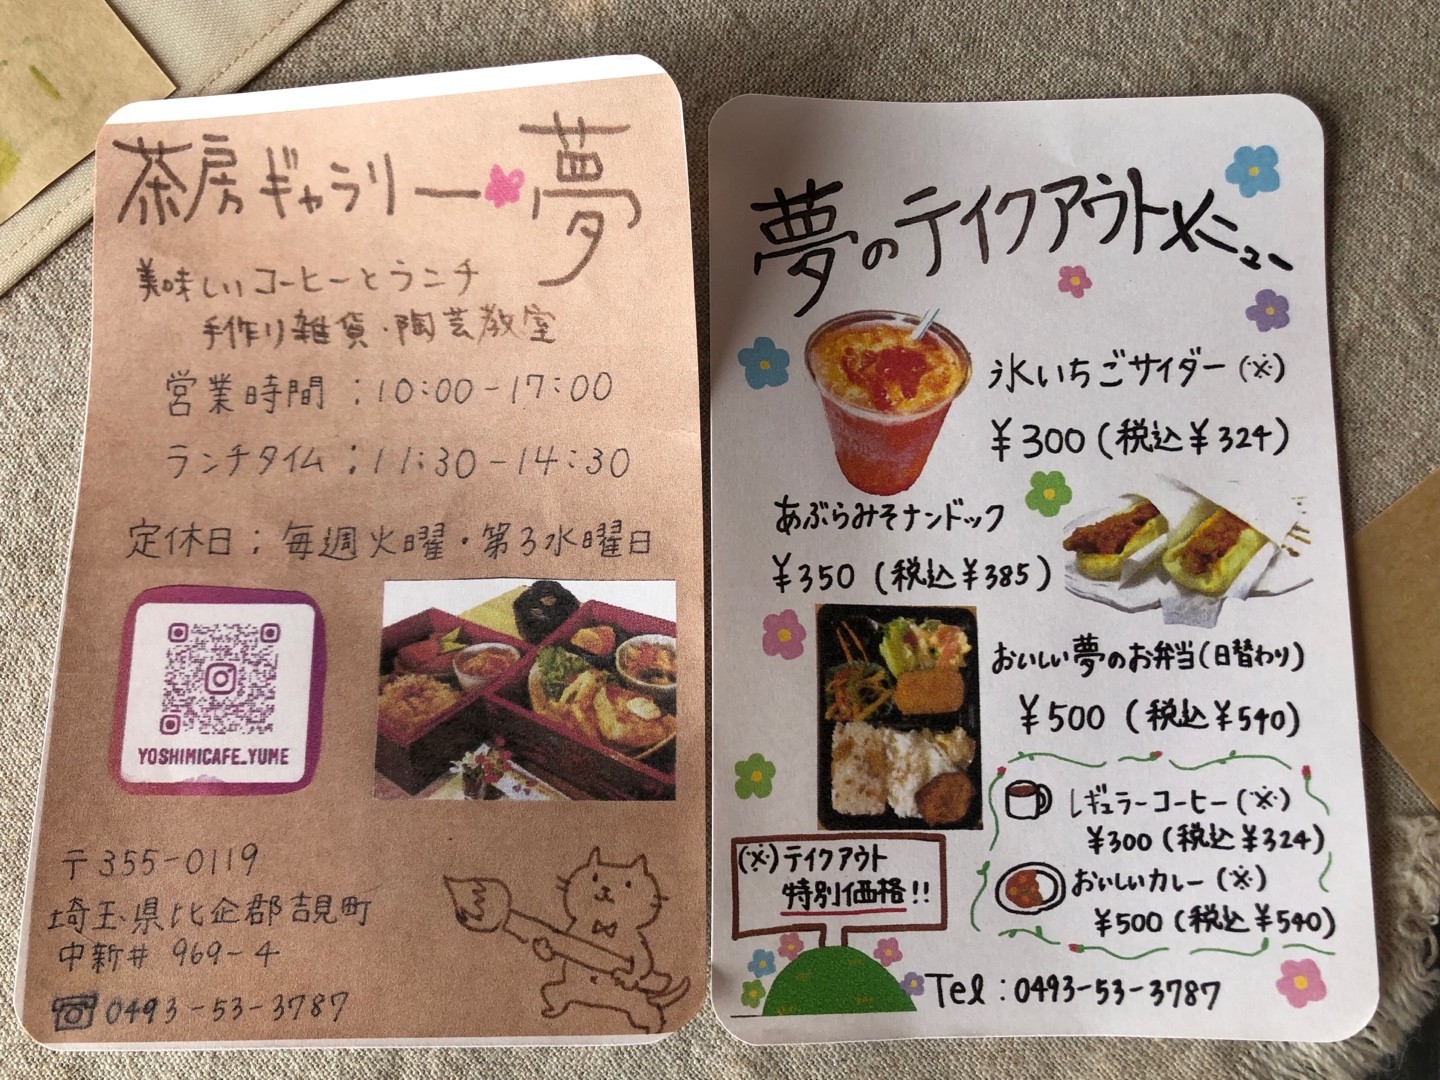 茶房ギャラリー夢
美味しいコーヒーとランチ
手作り雑貨・陶芸教室
営業時間：10:00-17:00
ランチタイム：11:30-14:30
定休日：毎週火曜・第3水曜日
YOSHIMICAFE_YUME
〒355-0119
埼玉県比企郡吉見町
中新井 969-4
☎0493-53-3787
夢のテイクアウトメニュー
氷いちごサイダー(※)
¥300(税込¥324)
あぶらみそナンドック
¥350(税込¥385)
おいしい夢のお弁当(日替わり)
¥500(税込¥540)
レギュラーコーヒー(※)
¥300(税込¥324)
おいしいカレー(※)
¥500(税込¥540)
(※)テイクアウト
特別価格!!
Tel:0493-53-3787